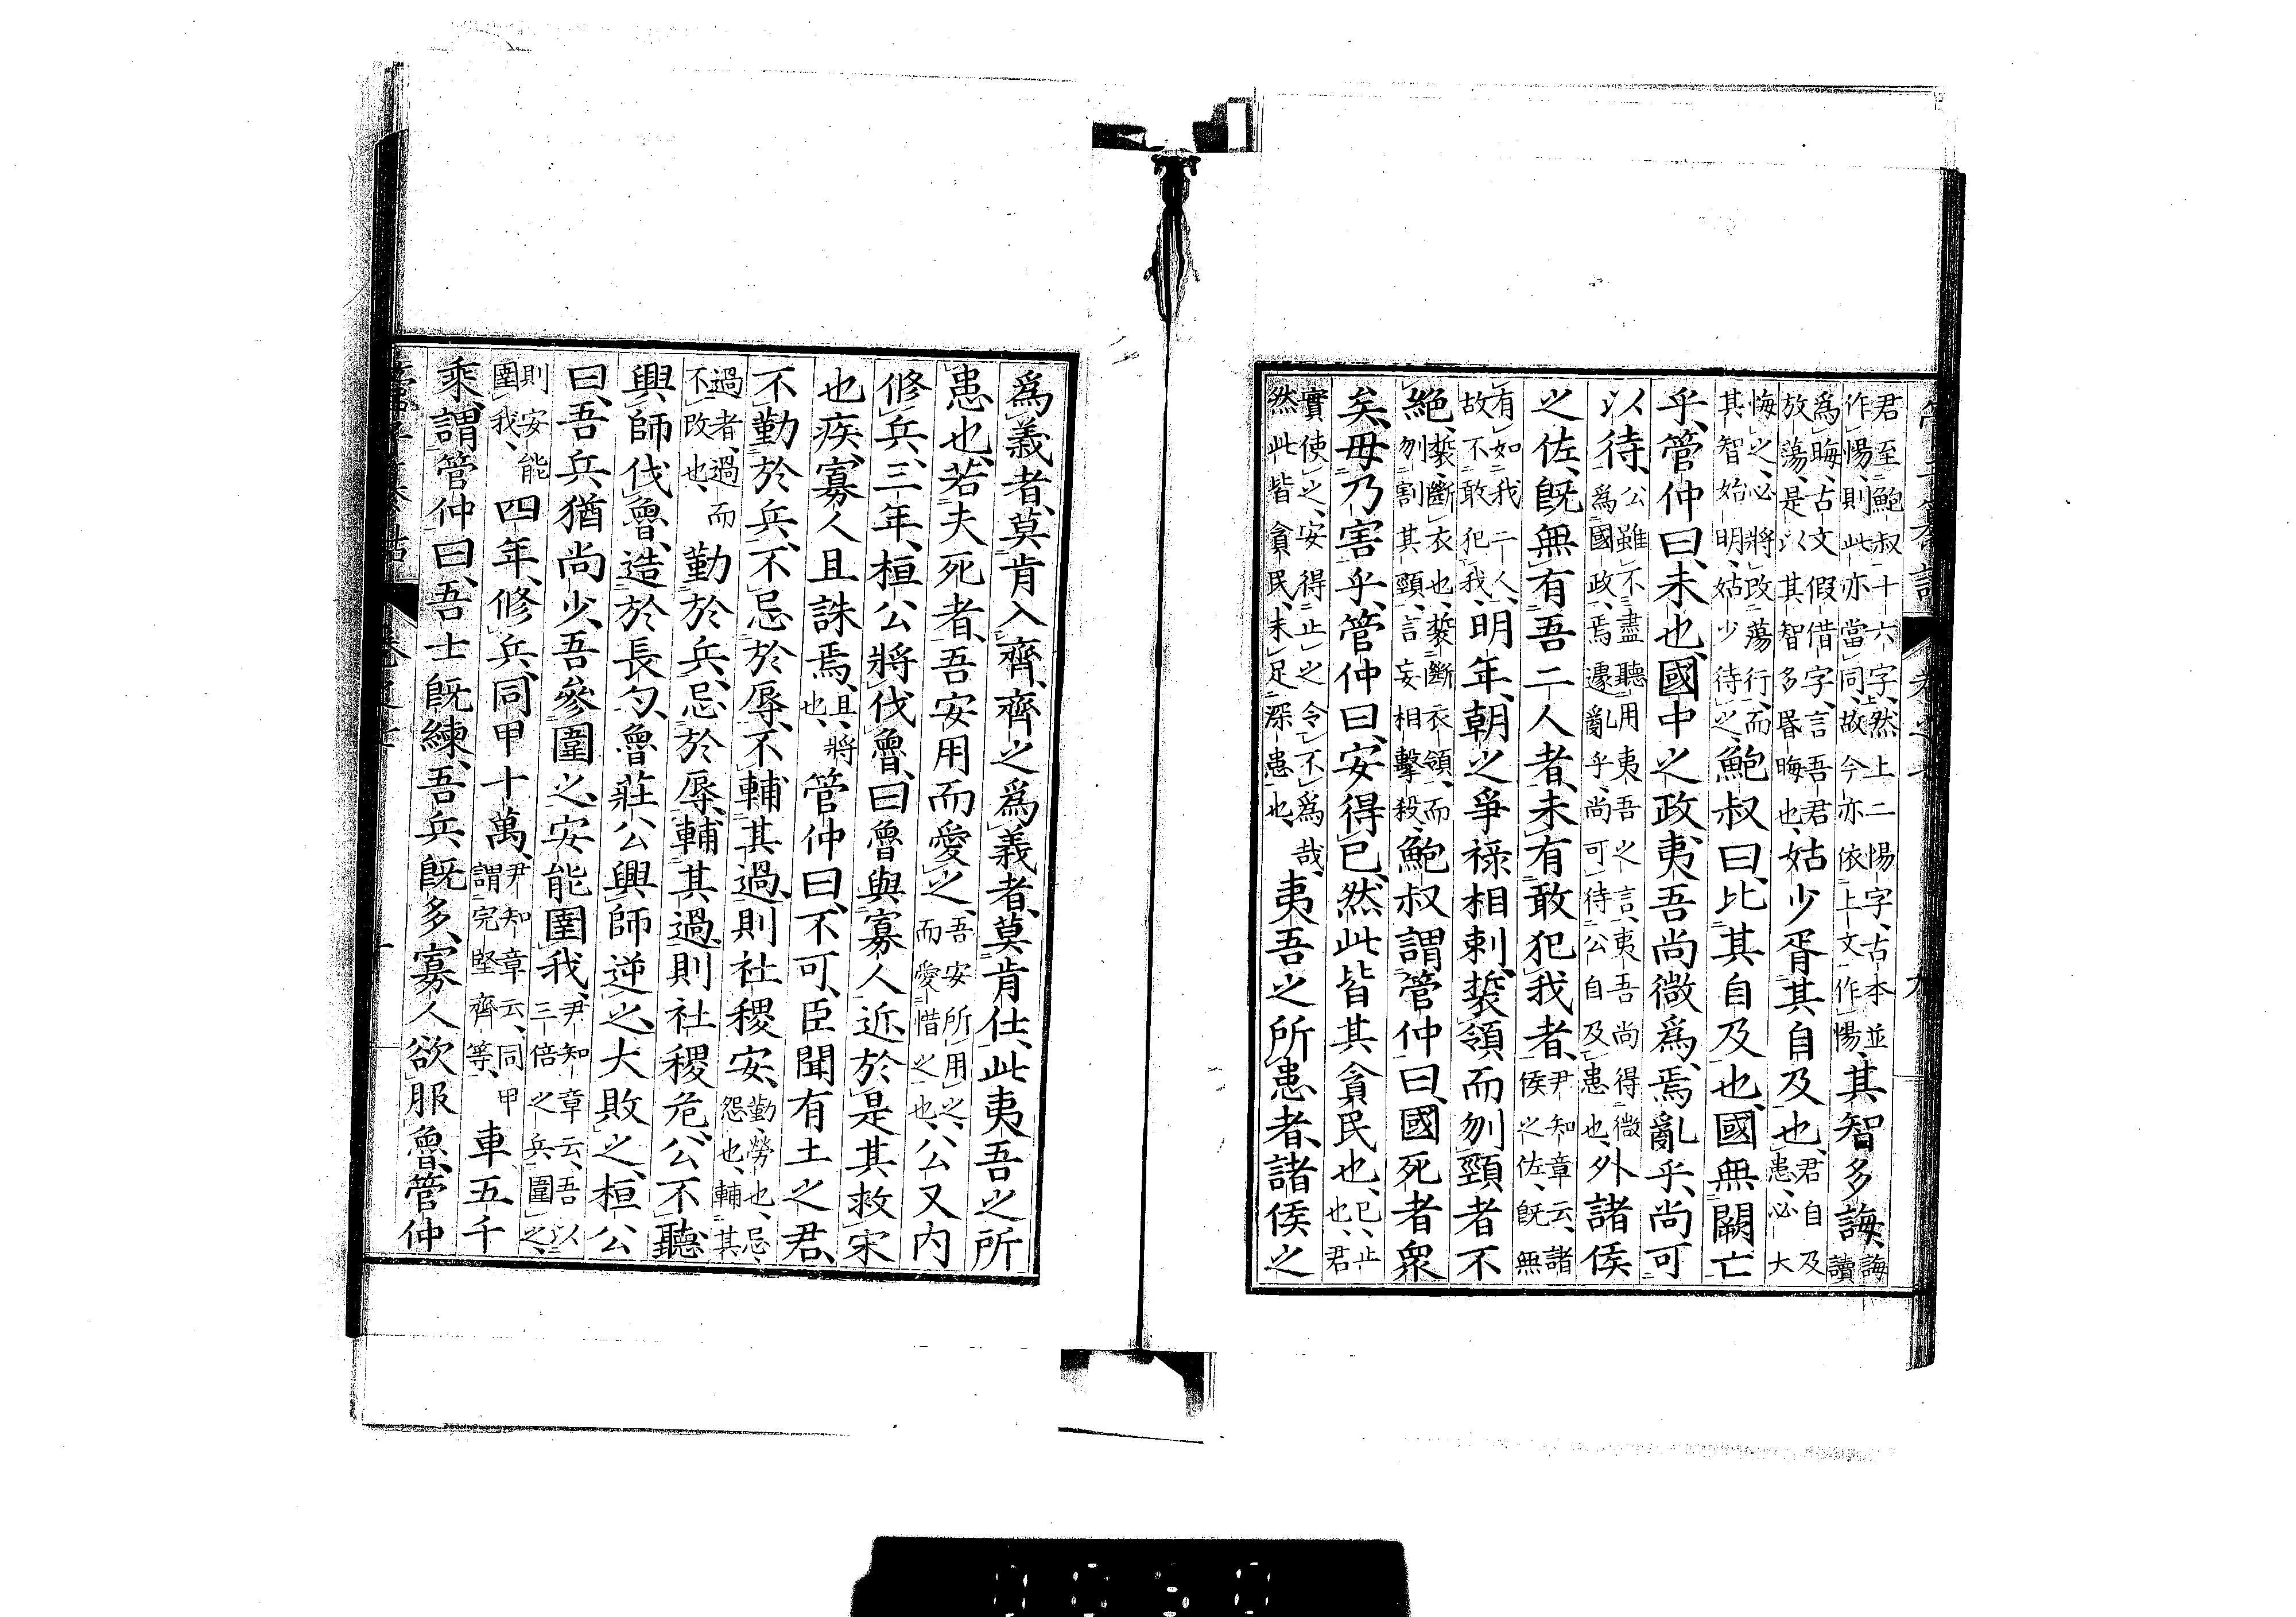 君至鮑叔十六字、然上二愓字、古本並作愓、則此亦當同、故今亦依上文作愓、其智多誨、誨讀
爲晦、古文假借字、言吾君放蕩、是以其智多昬晦也、姑少胥其自及也、君自及患、必大
悔之、必將改蕩行、而其智始明、姑少待之、鮑叔曰、比其自及也、國無闕亡
乎、管仲曰、未也、國中之政、夷吾尚微爲、焉亂乎、尚可
以待、公雖不盡聽用夷吾之言、夷吾尚得微爲國政、焉遽亂乎、尚可待公自及患也、外諸侯
之佐、既無有吾二人者、未有敢犯我者、尹知章云、諸侯之佐、既無
有如我二人、故不敢犯我、明年、朝之爭祿相刺、裚領而刎頸者不
絕、裚、斷衣也、裚斷衣領、而刎割其頸、言妄相擊殺、鮑叔謂管仲曰、國死者衆
矣、毋乃害乎、管仲曰、安得已、然此皆其貪民也、已、止也、君
實使之、安得止之令不爲哉、然此皆貪民、未足深患也、夷吾之所患者、諸侯之
爲義者、莫肯入齊、齊之爲義者、莫肯仕、此夷吾之所
患也、若夫死者、吾安用而愛之、吾安所用之、而愛惜之也、公又內
修兵、三年、桓公將伐魯、曰、魯與寡人近、於是其救宋
也疾、寡人且誅焉、且、將也、管仲曰、不可、臣聞有土之君、
不勤於兵、不忌於辱、不輔其過、則社稷安、勤、勞也、忌、怨也、輔其
過者、過而不改也、勤於兵、忌於辱、輔其過、則社稷危、公不聽、
興師伐魯、造於長勺、魯莊公興師逆之、大敗之、桓公
曰、吾兵猶尚少、吾參圍之、安能圉我、尹知章云、吾以三倍之兵圍之、
則安能圉我、四年、修兵、同甲十萬、尹知章云、同甲謂完堅齊等、車五千
乘、謂管仲曰、吾士既練、吾兵既多、寡人欲服魯、管仲